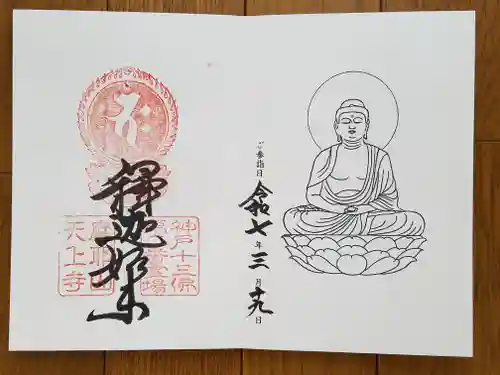 ご参詣日
令和七年三月十九日
釋迦如来
神戸十三佛
霊場
摩耶山
天上寺